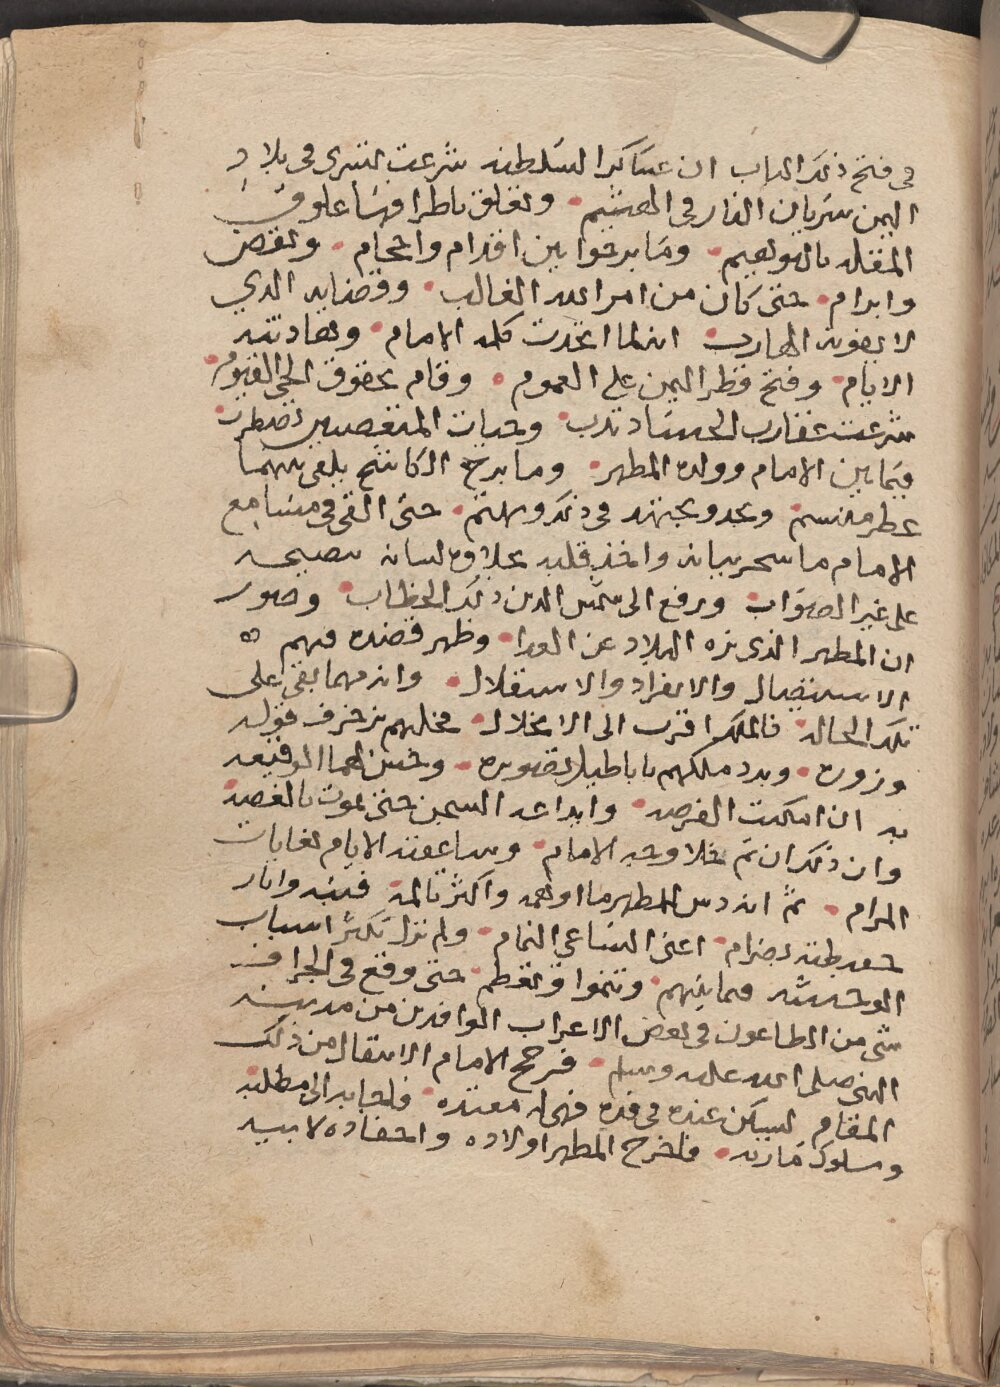 في فتح ذلك الباب ان عساكر السلطنه شرعت تسري في بلاد
اليمن سريان النار في الهشيم وتعلق باطرافها علوق
المقله بالتهويم وما برحوا بين اقدام واحجام ونقض
وابرام حتى كان من امر الله الغالب وقضايه الذي
لا يفوته الهارب انه لما اتحدت كلمه الامام وهادنته
الايام وفتح قطر اليمن على العموم وقام بحقوق الحي القيوم
شرعت عقارب الحساد تدب وحيات المنغصين تضطرب
فيما بين الامام وولده المطهر وما برح الكاشح يلقي بينهما
عطر منشم ويجد ويجتهد في ذلك ويهتم حتى القى في مسامع
الامام ما سحر ببيانه واخذ قلبه بحلاوه لسان نصيحه
على غير الصواب ورفع الى شمس الدين ذلك الخطاب وصور
ان المطهر الذي نزه البلاد عن العدا وظهر قصده فيهم
الاستيصال والانفراد والاستقلال وانه مهما بقي على
تلك الحاله فالملك اقرب الى الانحلال فخيلهم بزخرف قوله
وزوره وبدد ملكهم باباطيل تصويره وحسن لهما الوقيعه
به ان امكنت الفرصه وايداعه السجن حتى يموت بالغصه
وان ذلك ان تم خلا وجه الامام وساعفته الايام بغايات
المرام ثم انه دس للمطهر ما اوهمه واكثر تالمه فتنبه وانار
اعني الساعي النمام ولم تزل تكثر اسباب
الوحشه فيما بينهم وتنموا وتعظم حتى وقع في الجراف
شي من الطاعون في بعض الاعراب الوافدين من مدينه
النبي صلى الله عليه وسلم فرجح الامام الانتقال من ذلك
المقام ليسكن عنده في فهمان معتده فاجابه الى مطلبه
وسلوك ماربه فاخرج المطهر اولاده واحفاده لابيه